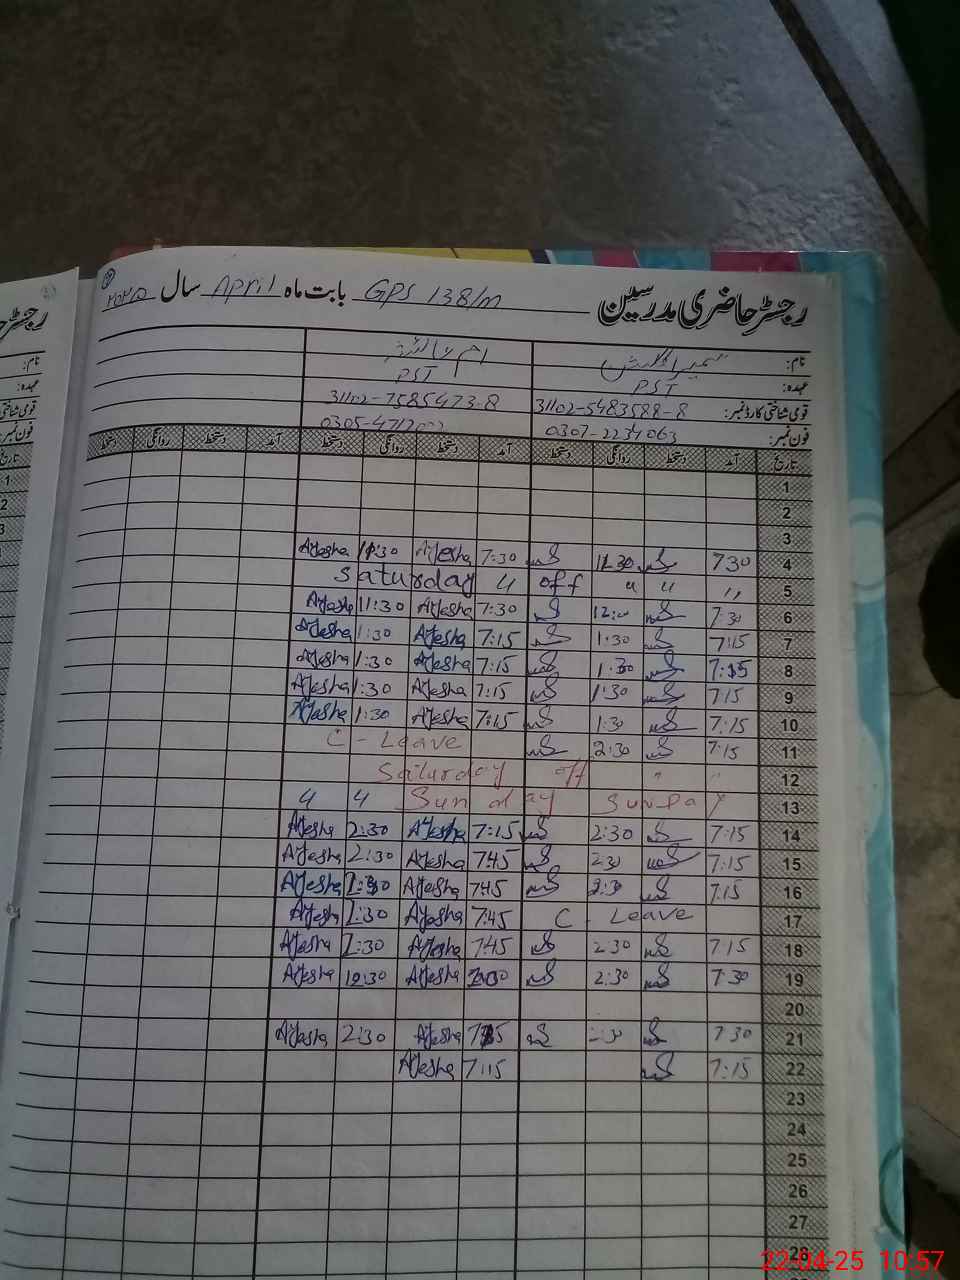 رجسٹر حاضری مدرسین GPS 138/M بابت ماہ April سال ۲۰۲۵
نام:
عہدہ: PST PST
قومی شناختی کارڈ نمبر: 31102-5483588-8 31102-7585473-8
فون نمبر: 0307-2234063 0305-4712
تاریخ آمد دستخط روانگی دستخط آمد دستخط روانگی دستخط آمد دستخط روانگی دستخط
1
2
3
4 730 11:30 7:30 Ayesha 11:30 Ayesha
5 ,, " " off " Saturday
6 7:30 12:00 7:30 Ayesha 11:30 Ayesha
7 7:15 1:30 7:15 Ayesha 1:30 Ayesha
8 7:15 1:30 7:15 Ayesha 1:30 Ayesha
9 715 1:30 7:15 Ayesha 1:30 Ayesha
10 7:15 1:30 7:15 Ayesha 1:30 Ayesha
11 7:15 2:30 C - Leave
12 " " Saturday off
13 Sunday Sunday " "
14 7:15 2:30 7:15 Ayesha 2:30 Ayesha
15 7:15 230 745 Ayesha 2:30 Ayesha
16 7:15 2:30 745 Ayesha Ayesha
17 C - Leave 7:45 Ayesha 2:30 Ayesha
18 7:15 230 745 Ayesha 2:30 Ayesha
19 7:30 2:30 Ayesha 12:30 Ayesha
20
21 730 Ayesha 2:30 Ayesha
22 7:15 7:15 Ayesha
23
24
25
26
27
28
22-04-25 10:57